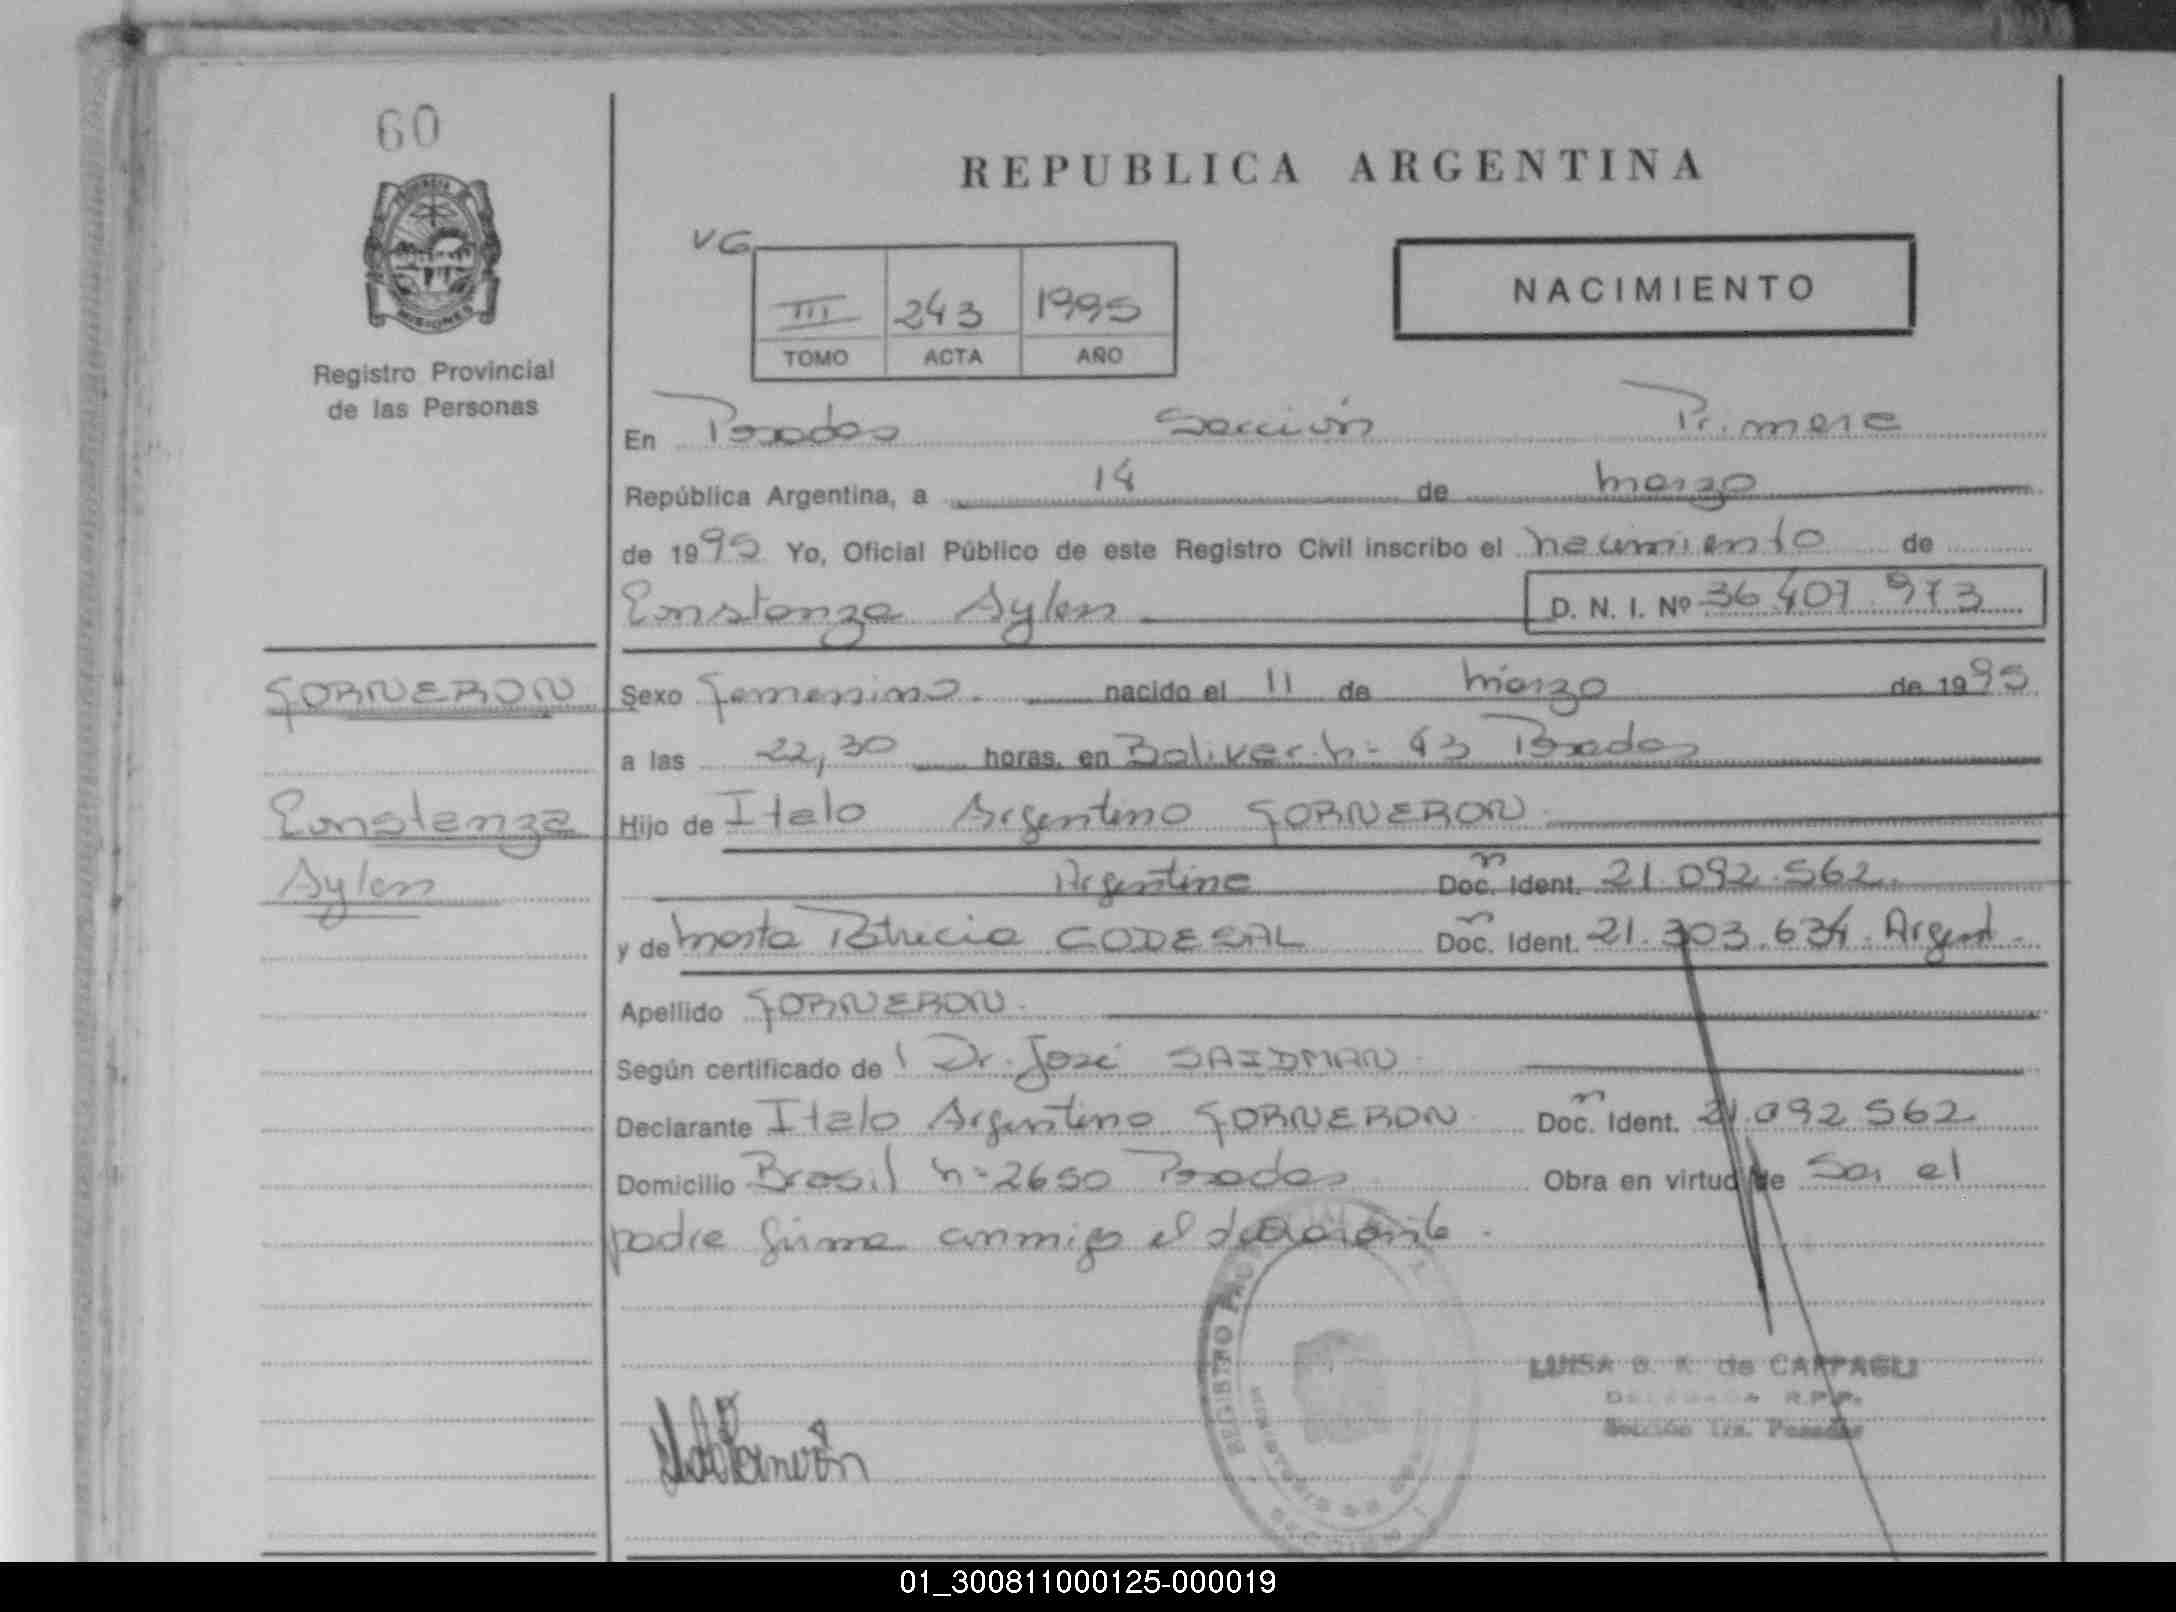 60
MISIONES
Registro Provincial
de las Personas
REPUBLICA ARGENTINA
VG
III 243 1995
TOMO ACTA AÑO
NACIMIENTO
En Posadas Sección Primera
República Argentina, a 14 de marzo
de 1995 Yo, Oficial Público de este Registro Civil inscribo el nacimiento de
Constanza Aylen D. N. I. Nº 36.407.973
FORNERON
Constanza
Aylen
Sexo Femenino. nacido el 11 de marzo de 1995
a las 22,30 horas, en Bolivar n= 43 Posadas
Hijo de Italo Argentino FORNERON
Argentino Doc. Ident. 21.092.562.
y de Marta Patricia CODESAL Doc. Ident. 21.303.634. Argent.
Apellido FORNERON.
Según certificado de Dr. José SAIDMAN
Declarante Italo Argentino FORNERON Doc. Ident. 21.092 562
Domicilio Brasil n=2650 Posadas Obra en virtud de Ser el
padre firma conmigo el declarante.
LUISA B. K. de CARPAGLI
DELEGADA R.P.P.
Sección 1ra. Posadas
REGISTRO
01_300811000125-000019